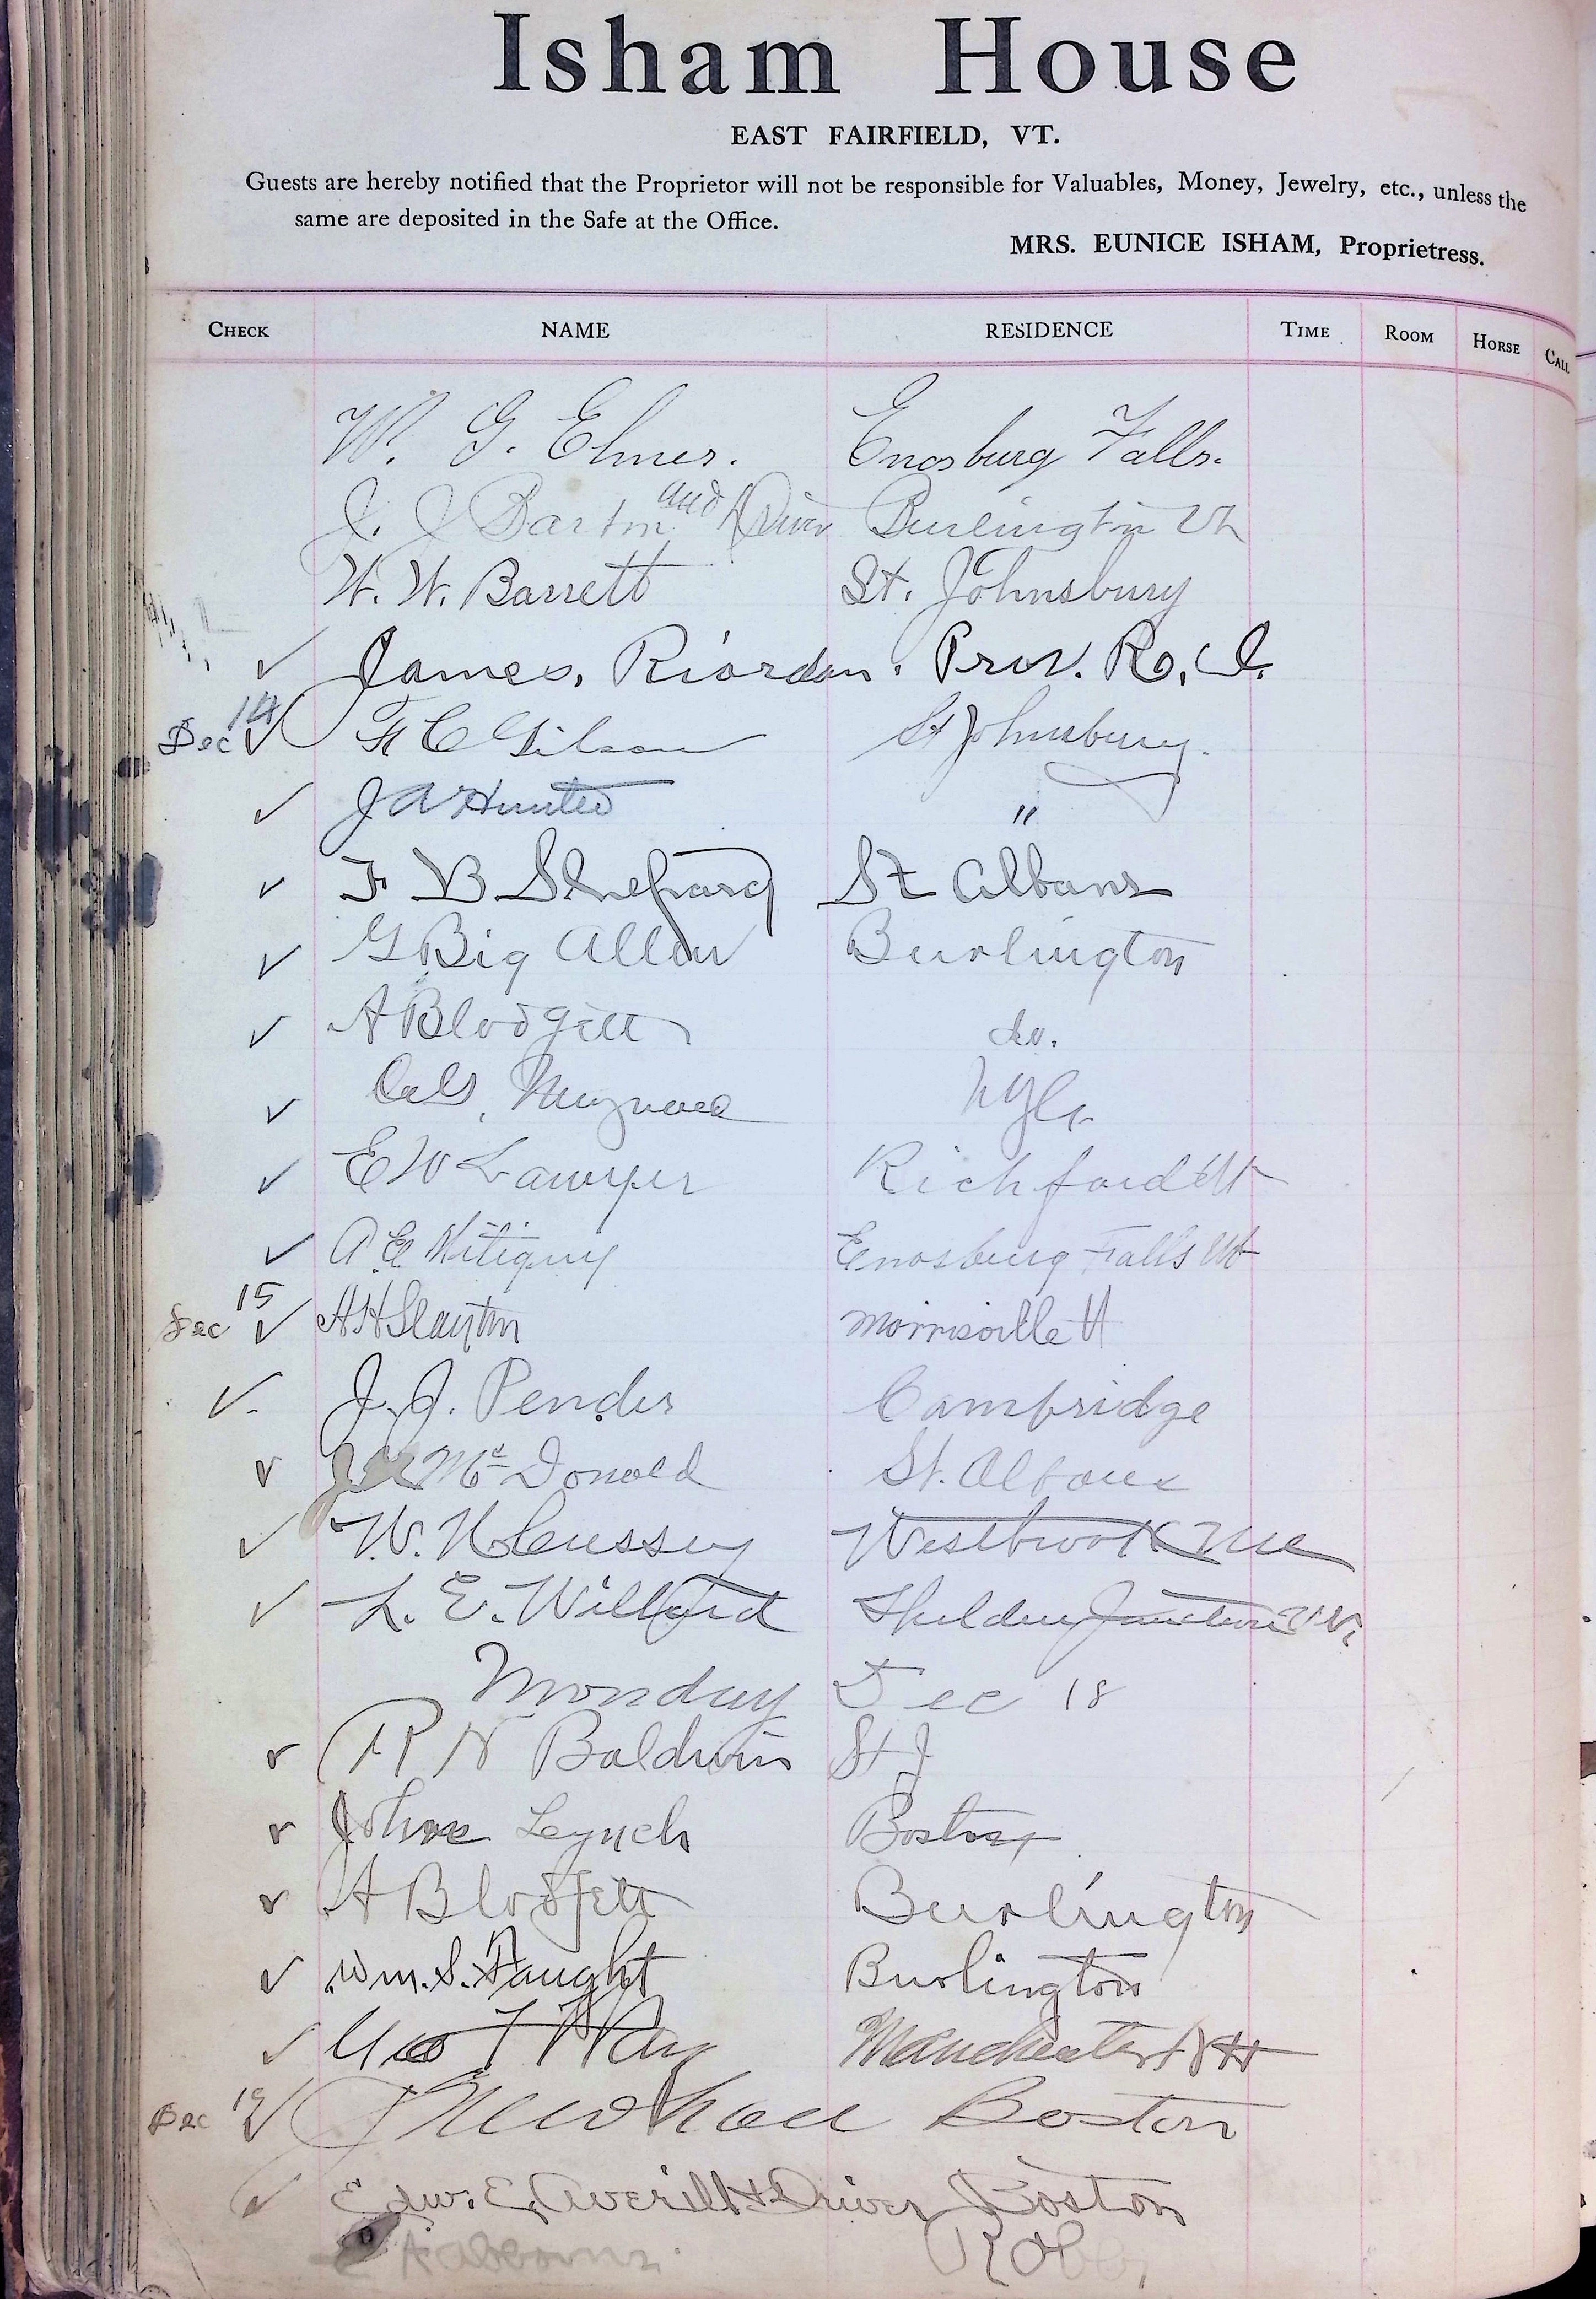 Isham House
EAST FAIRFIELD, VT.
Guests are hereby notified that the Proprietor will not be responsible for Valuables, Money, Jewelry, etc., unless the
same are deposited in the Safe at the Office.
MRS. EUNICE ISHAM, Proprietress.
CHECK NAME RESIDENCE TIME ROOM HORSE CALL
W. G. Elmer. Enosburg Falls.
J. J Barton and Driver Burlington Vt
W. W. Barrett St. Johnsbury
✓ James, Riordan. Prov. R. I.
Dec 14 ✓ F C Gilson St Johnsbury.
✓ J A Hunter "
✓ F B Shepard St Albans
✓ G Big Allen Burlington
✓ A Blodgett do.
✓ Maynard
✓ E W Lawyer Richford Vt
✓ A. E. Mitiguy Enosburg Falls Vt
Dec 15 ✓ A H Slayton Morrisville Vt
✓ J. J. Pender Cambridge
✓ McDonald St. Albans
✓ W. H. Cussey Westbrook Me
✓ L. E. Willard Sheldon Junction Vt.
Monday Dec 18
✓ R N Baldwin St J
✓ John Lynch Boston
✓ A Blodgett Burlington
✓ Wm. S. Faught Burlington
✓ Geo T Way Manchester N H
Dec 19 ✓ Newhall Boston
✓ Edw. E. Averill & Driver Boston